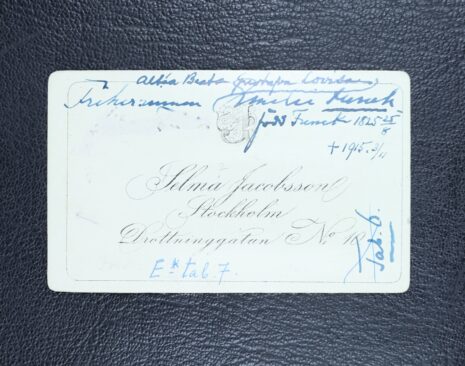 Altea Beata Gustafva Lovisa
Friherrinnan Emilie Funck
född Funck 1825 25/8
+ 1915. 3/11
Selma Jacobsson
Stockholm
Drottninggatan No 10
Tab. 6.
Ek tab. 7.